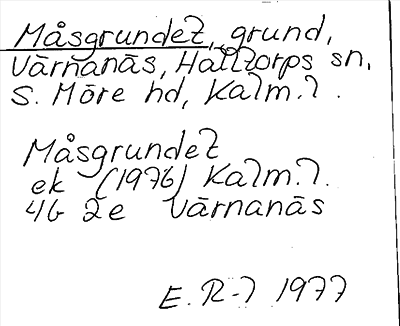 Måsgrundet, grund,
Värnanäs, Halltorps sn,
S. Möre hd, Kalm. l.
Måsgrundet
ek (1976) Kalm. l.
4G 2e Värnanäs
E. R-l 1977